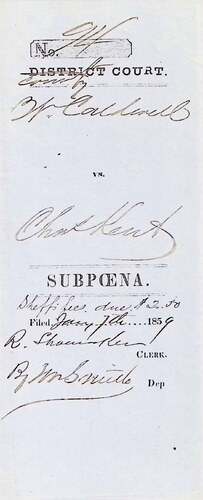 No. 94
DISTRICT COURT.
County
Wm Caldwell
vs.
Chas Kent
SUBPŒNA.
Shffs fee due, $2.50
Filed Jany 7th 1859
R.
CLERK.
By Wm Smith Dep